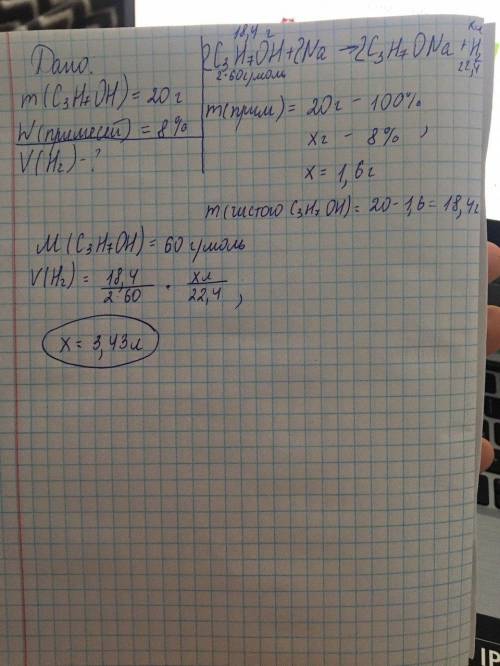 Дано.
m(C₃H₇OH) = 20 г
W(примесей) = 8%
V(H₂) - ?
18,4 г
xл
2C₃H₇OH + 2Na → 2C₃H₇ONa + H₂
2·60г/моль
22,4
m(прим) = 20г - 100%
xг - 8% ,
x = 1,6г
m(чистого C₃H₇OH) = 20 - 1,6 = 18,4г
M(C₃H₇OH) = 60 г/моль
V(H₂) = 18,4/2·60 · xл/22,4 ,
x = 3,43л